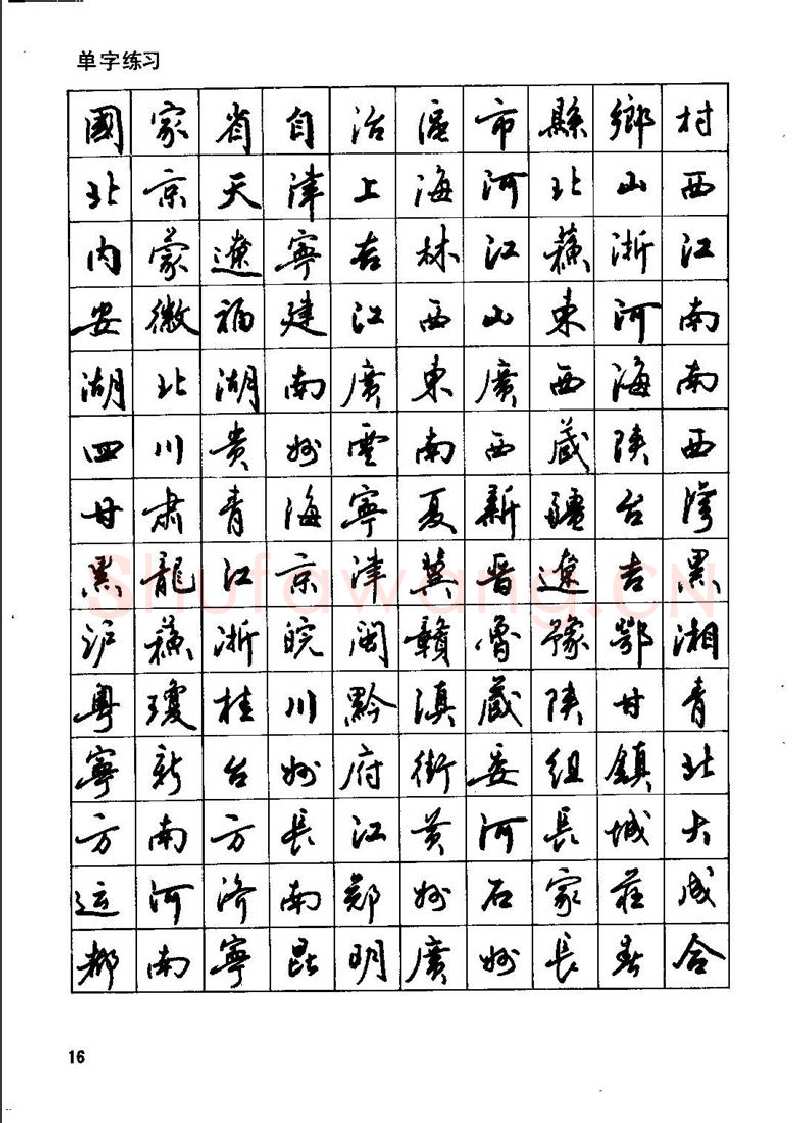 单字练习
國家省自治區市縣鄉村
北京天津上海河北山西
内蒙遼寧吉林江蘇浙江
安徽福建江西山東河南
湖北湖南廣東廣西海南
四川貴州雲南西藏陕西
甘肃青海寧夏新疆台灣
黑龍江京津冀晋遼吉黑
沪蘇浙皖闽赣魯豫鄂湘
粤瓊桂川黔滇藏陕甘青
寧新台州府街委組鎮北
方南方長江黄河長城大
运河济南鄭州石家莊成
都南寧昆明廣州長春合
16
Shufawang.CN